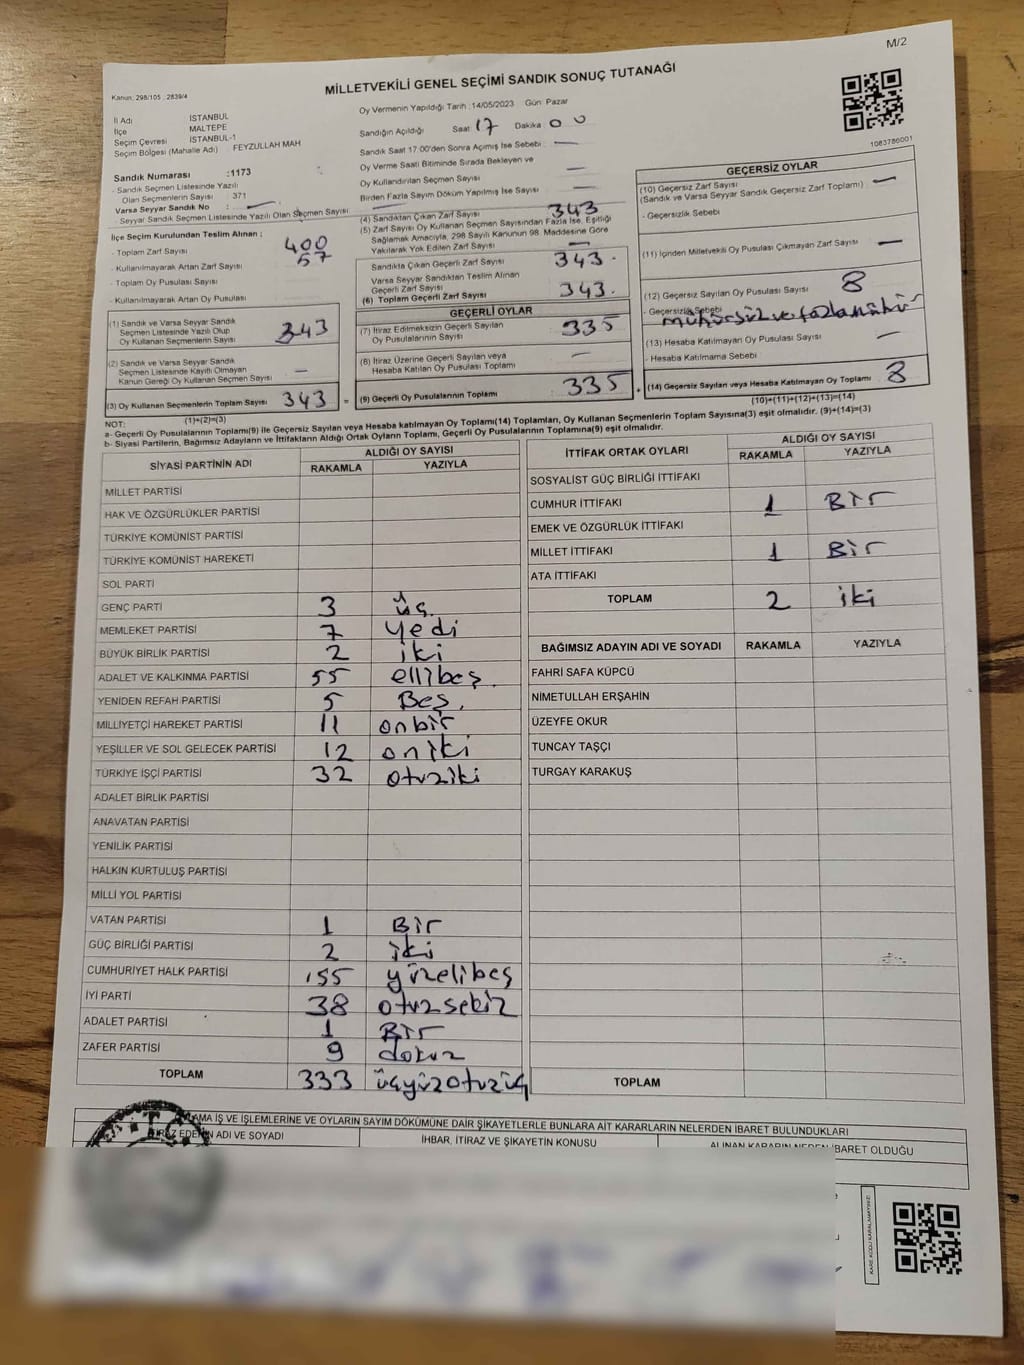 M/2
MİLLETVEKİLİ GENEL SEÇİMİ SANDIK SONUÇ TUTANAĞI
Kanun: 298/105 ; 2839/4
İl Adı İSTANBUL
İlçe MALTEPE
Seçim Çevresi İSTANBUL-1
Seçim Bölgesi (Mahalle Adı) FEYZULLAH MAH
Sandık Numarası :1173
- Sandık Seçmen Listesinde Yazılı
Olan Seçmenlerin Sayısı : 371
Varsa Seyyar Sandık No : —
- Seyyar Sandık Seçmen Listesinde Yazılı Olan Seçmen Sayısı
İlçe Seçim Kurulundan Teslim Alınan ;
- Toplam Zarf Sayısı 400
- Kullanılmayarak Artan Zarf Sayısı 57
- Toplam Oy Pusulası Sayısı
- Kullanılmayarak Artan Oy Pusulası
(1) Sandık ve Varsa Seyyar Sandık
Seçmen Listesinde Yazılı Olup
Oy Kullanan Seçmenlerin Sayısı 343
(2) Sandık ve Varsa Seyyar Sandık
Seçmen Listesinde Kayıtlı Olmayan
Kanun Gereği Oy Kullanan Seçmen Sayısı —
(3) Oy Kullanan Seçmenlerin Toplam Sayısı 343
(1)+(2)=(3)
Oy Vermenin Yapıldığı Tarih :14/05/2023 Gün: Pazar
Sandığın Açıldığı Saat: 17 Dakika: 00
Sandık Saat 17:00'den Sonra Açılmış İse Sebebi —
Oy Verme Saati Bitiminde Sırada Bekleyen ve
Oy Kullandırılan Seçmen Sayısı —
Birden Fazla Sayım Döküm Yapılmış İse Sayısı —
(4) Sandıktan Çıkan Zarf Sayısı 343
(5) Zarf Sayısı Oy Kullanan Seçmen Sayısından Fazla İse, Eşitliği
Sağlamak Amacıyla, 298 Sayılı Kanunun 98. Maddesine Göre
Yakılarak Yok Edilen Zarf Sayısı —
Sandıkta Çıkan Geçerli Zarf Sayısı 343.
Varsa Seyyar Sandıktan Teslim Alınan
Geçerli Zarf Sayısı
(6) Toplam Geçerli Zarf Sayısı 343.
GEÇERLİ OYLAR
(7) İtiraz Edilmeksizin Geçerli Sayılan
Oy Pusulalarının Sayısı 335
(8) İtiraz Üzerine Geçerli Sayılan veya
Hesaba Katılan Oy Pusulası Toplamı —
= (9) Geçerli Oy Pusulalarının Toplamı 335
1083786001
GEÇERSİZ OYLAR
(10) Geçersiz Zarf Sayısı —
(Sandık ve Varsa Seyyar Sandık Geçersiz Zarf Toplamı)
- Geçersizlik Sebebi
(11) İçinden Milletvekili Oy Pusulası Çıkmayan Zarf Sayısı —
(12) Geçersiz Sayılan Oy Pusulası Sayısı 8
- Geçersizlik Sebebi mühürsüz ve fazla mühür
(13) Hesaba Katılmayan Oy Pusulası Sayısı —
- Hesaba Katılmama Sebebi
(14) Geçersiz Sayılan veya Hesaba Katılmayan Oy Toplamı 8
(10)+(11)+(12)+(13)=(14)
NOT:
a- Geçerli Oy Pusulalarının Toplamı(9) ile Geçersiz Sayılan veya Hesaba katılmayan Oy Toplamı(14) Toplamları, Oy Kullanan Seçmenlerin Toplam Sayısına(3) eşit olmalıdır. (9)+(14)=(3)
b- Siyasi Partilerin, Bağımsız Adayların ve İttifakların Aldığı Ortak Oyların Toplamı, Geçerli Oy Pusulalarının Toplamına(9) eşit olmalıdır.
SİYASİ PARTİNİN ADI ALDIĞI OY SAYISI
RAKAMLA YAZIYLA
MİLLET PARTİSİ
HAK VE ÖZGÜRLÜKLER PARTİSİ
TÜRKİYE KOMÜNİST PARTİSİ
TÜRKİYE KOMÜNİST HAREKETİ
SOL PARTİ
GENÇ PARTİ 3 üç.
MEMLEKET PARTİSİ 7 yedi
BÜYÜK BİRLİK PARTİSİ 2 iki
ADALET VE KALKINMA PARTİSİ 55 ellibeş.
YENİDEN REFAH PARTİSİ 5 Beş.
MİLLİYETÇİ HAREKET PARTİSİ 11 onbir
YEŞİLLER VE SOL GELECEK PARTİSİ 12 oniki
TÜRKİYE İŞÇİ PARTİSİ 32 otuziki
ADALET BİRLİK PARTİSİ
ANAVATAN PARTİSİ
YENİLİK PARTİSİ
HALKIN KURTULUŞ PARTİSİ
MİLLİ YOL PARTİSİ
VATAN PARTİSİ 1 Bir
GÜÇ BİRLİĞİ PARTİSİ 2 iki
CUMHURİYET HALK PARTİSİ 155 yüzelibeş
İYİ PARTİ 38 otuzsekiz
ADALET PARTİSİ 1 Bir
ZAFER PARTİSİ 9 dokuz
TOPLAM 333 üçyüzotuzüç
İTTİFAK ORTAK OYLARI ALDIĞI OY SAYISI
RAKAMLA YAZIYLA
SOSYALİST GÜÇ BİRLİĞİ İTTİFAKI
CUMHUR İTTİFAKI 1 Bir
EMEK VE ÖZGÜRLÜK İTTİFAKI
MİLLET İTTİFAKI 1 Bir
ATA İTTİFAKI
TOPLAM 2 iki
BAĞIMSIZ ADAYIN ADI VE SOYADI RAKAMLA YAZIYLA
FAHRİ SAFA KÜPCÜ
NİMETULLAH ERŞAHİN
ÜZEYFE OKUR
TUNCAY TAŞÇI
TURGAY KARAKUŞ
TOPLAM
AMA İŞ VE İŞLEMLERİNE VE OYLARIN SAYIM DÖKÜMÜNE DAİR ŞİKAYETLERLE BUNLARA AİT KARARLARIN NELERDEN İBARET BULUNDUKLARI
İTİRAZ EDENİN ADI VE SOYADI İHBAR, İTİRAZ VE ŞİKAYETİN KONUSU ALINAN KARARIN NEDEN İBARET OLDUĞU
T.C.
KARE KODU KARALAMAYINIZ!